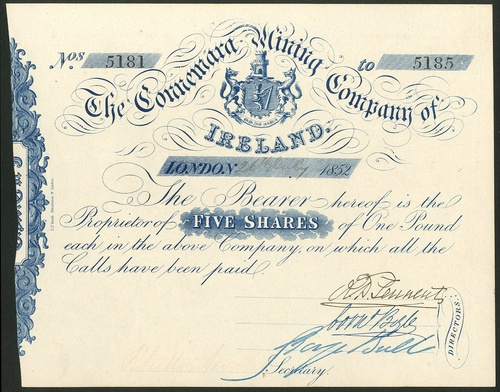 Nos 5181 to 5185
The Connemara Mining Company of
IRELAND.
LONDON 1852
The Bearer hereof is the
Proprietor of FIVE SHARES of One Pound
each in the above Company, on which all the
Calls have been paid
R. D. Tennent
DIRECTORS.
Secretary.